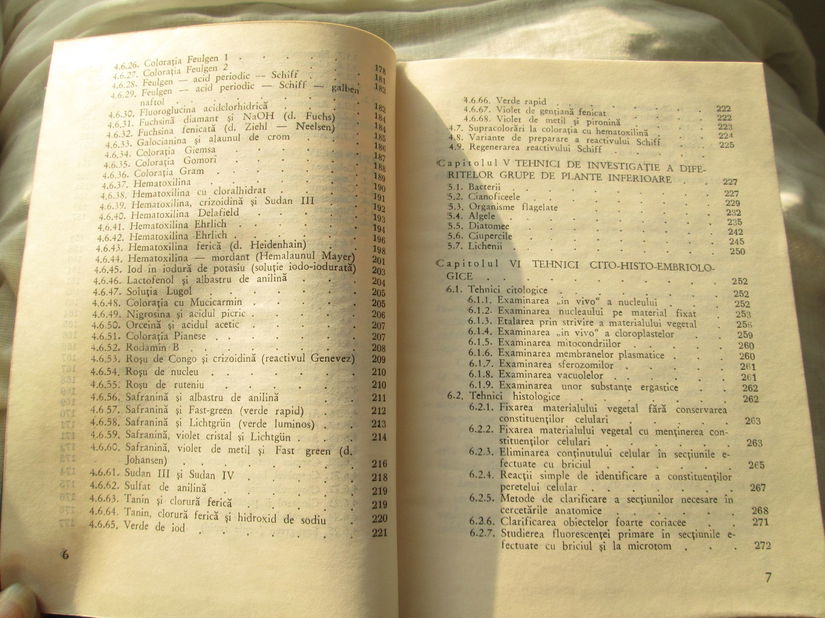 4.6.26. Colorația Feulgen 1 . . . . 178
4.6.27. Colorația Feulgen 2 . . . . 181
4.6.28. Feulgen — acid periodic — Schiff . . . 182
4.6.29. Feulgen — acid periodic — Schiff — galben
naftol . . . . . . 183
4.6.30. Fluoroglucina acidclorhidrică . . . 184
4.6.31. Fuchsina diamant și NaOH (d. Fuchs) . 184
4.6.32. Fuchsina fenicată (d. Ziehl — Neelsen) . 185
4.6.33. Galocianina și alaunul de crom . . .
4.6.34. Colorația Giemsa . . . .
4.6.35. Colorația Gomori . . . .
4.6.36. Colorația Gram . . . .
4.6.37. Hematoxilina . . . .
4.6.38. Hematoxilina cu cloralhidrat . . .
4.6.39. Hematoxilina, crizoidină și Sudan III . .
4.6.40. Hematoxilina Delafield . . . .
4.6.41. Hematoxilina Ehrlich . . . .
4.6.42. Hematoxilina Ehrlich . . . .
4.6.43. Hematoxilina ferică (d. Heidenhain) . .
4.6.44. Hematoxilina — mordant (Hemalaunul Mayer)
4.6.45. Iod în iodură de potasiu (soluție iodo-iodurată)
4.6.46. Lactofenol și albastru de anilină . . .
4.6.47. Soluția Lugol . . . .
4.6.48. Colorația cu Mucicarmin . . . 205
4.6.49. Nigrosina și acidul picric . . . 206
4.6.50. Orceină și acidul acetic . . . 207
4.6.51. Colorația Pianese . . . . 207
4.6.52. Rodamin B . . . . 208
4.6.53. Roșu de Congo și crizoidină (reactivul Genevez) 209
4.6.54. Roșu de nucleu . . . . 210
4.6.55. Roșu de ruteniu . . . . 210
4.6.56. Safranină și albastru de anilină . . . 211
4.6.57. Safranină și Fast-green (verde rapid) . . 212
4.6.58. Safranină și Lichtgrün (verde luminos) . . 213
4.6.59. Safranină, violet cristal și Lichtgün . . . 214
4.6.60. Safranină, violet de metil și Fast green (d.
Johansen) . . . . 216
4.6.61. Sudan III și Sudan IV . . . 218
4.6.62. Sulfat de anilină . . . . 219
4.6.63. Tanin și clorură ferică . . . 219
4.6.64. Tanin, clorură ferică și hidroxid de sodiu . 220
4.6.65. Verde de iod . . . . 221
6
4.6.66. Verde rapid . . . . 222
4.6.67. Violet de gențiană fenicat . . . 222
4.6.68. Violet de metil și pironină . . . 222
4.7. Supracolorări la colorația cu hematoxilină . . 223
4.8. Variante de preparare a reactivului Schiff . . 224
4.9. Regenerarea reactivului Schiff . . . 225
Capitolul V TEHNICI DE INVESTIGAȚIE A DIFE-
RITELOR GRUPE DE PLANTE INFERIOARE . . . 227
5.1. Bacterii . . . . 227
5.2. Cianoficeele . . . . 229
5.3. Organisme flagelate . . . . 232
5.4. Algele . . . . 235
5.5. Diatomee . . . . 242
5.6. Ciupercile . . . . 245
5.7. Lichenii . . . . 250
Capitolul VI TEHNICI CITO-HISTO-EMBRIOLO-
GICE . . . . 252
6.1. Tehnici citologice . . . . 252
6.1.1. Examinarea „in vivo” a nucleului . . 252
6.1.2. Examinarea nucleului pe material fixat . 253
6.1.3. Etalarea prin strivire a materialului vegetal . 258
6.1.4. Examinarea „in vivo” a cloroplastelor . . 259
6.1.5. Examinarea mitocondriilor . . . 260
6.1.6. Examinarea membranelor plasmatice . . 260
6.1.7. Examinarea sferozomilor . . . 261
6.1.8. Examinarea vacuolelor . . . 261
6.1.9. Examinarea unor substanțe ergastice . . 262
6.2. Tehnici histologice . . . . 262
6.2.1. Fixarea materialului vegetal fără conservarea
constituenților celulari . . . 263
6.2.2. Fixarea materialului vegetal cu menținerea con-
stituenților celulari . . . 263
6.2.3. Eliminarea conținutului celular în secțiunile e-
fectuate cu briciul . . . 265
6.2.4. Reacții simple de identificare a constituenților
peretelui celular . . . 267
6.2.5. Metode de clarificare a secțiunilor necesare în
cercetările anatomice . . . 268
6.2.6. Clarificarea obiectelor foarte coriacee . . 271
6.2.7. Studierea fluorescenței primare în secțiunile e-
fectuate cu briciul și la microtom . . . 272
7